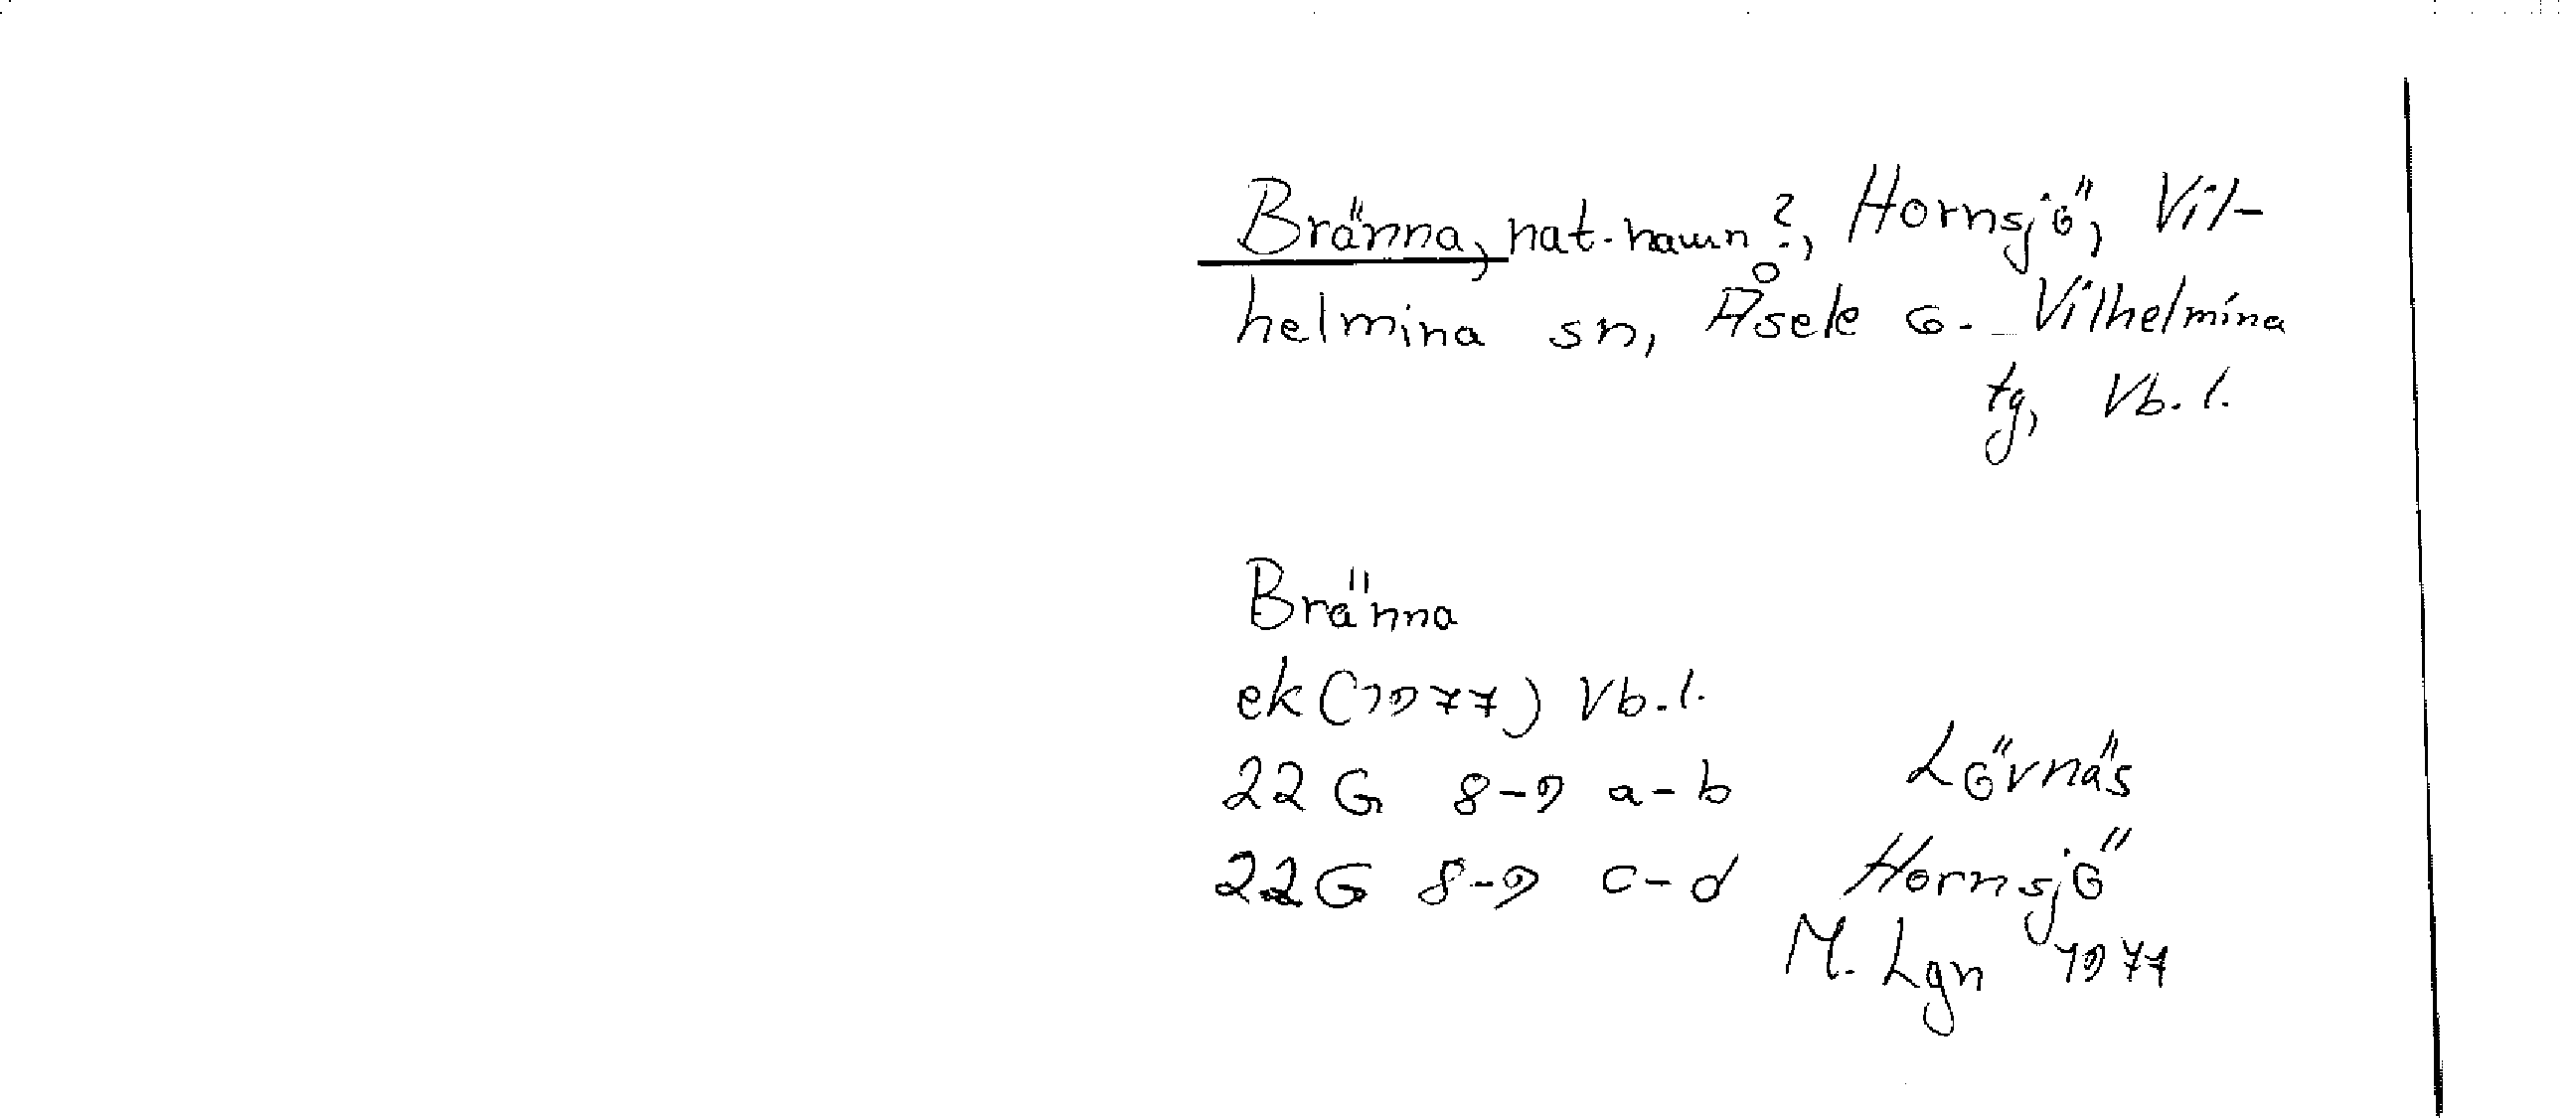 Bränna, nat.namn?, Hornsjö, Vil-
helmina sn, Åsele o. Vilhelmina
tg, Vb. l.
Bränna
ek (1977) Vb. l.
22 G 8-9 a-b Lövnäs
22G 8-9 c-d Hornsjö
M. Lgn 1977